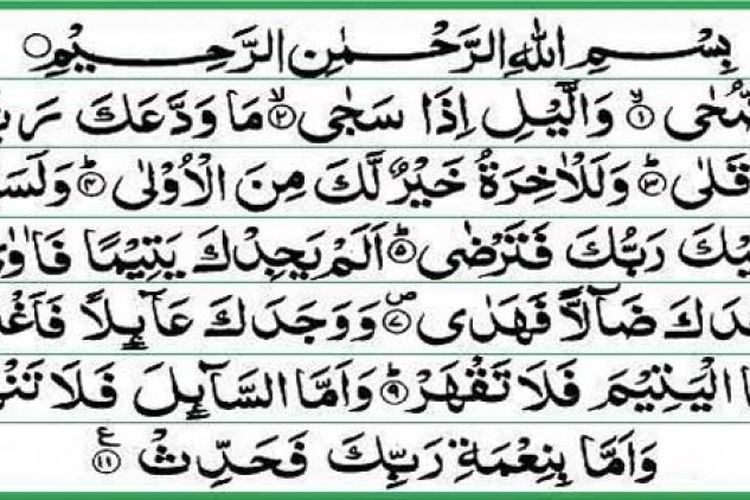 بِسْمِ اللّٰهِ الرَّحْمٰنِ الرَّحِيْمِ ○
ضُّحٰى ۙ﴿۱﴾ وَالَّيْلِ اِذَا سَجٰى ۙ﴿۲﴾ مَا وَدَّعَكَ رَبُّ
قَلٰى ؕ﴿۳﴾ وَلَلْاٰخِرَةُ خَيْرٌ لَّكَ مِنَ الْاُوْلٰى ؕ﴿۴﴾ وَلَسَ
يْكَ رَبُّكَ فَتَرْضٰى ؕ﴿۵﴾ اَلَمْ يَجِدْكَ يَتِيْمًا فَاٰوٰى
دَكَ ضَآلًّا فَهَدٰى ۪﴿۷﴾ وَوَجَدَكَ عَآئِلًا فَاَغْ
ا الْيَتِيْمَ فَلَا تَقْهَرْ ؕ﴿۹﴾ وَاَمَّا السَّآئِلَ فَلَا تَنْهَ
وَاَمَّا بِنِعْمَةِ رَبِّكَ فَحَدِّثْ ﴿۱۱﴾ ع